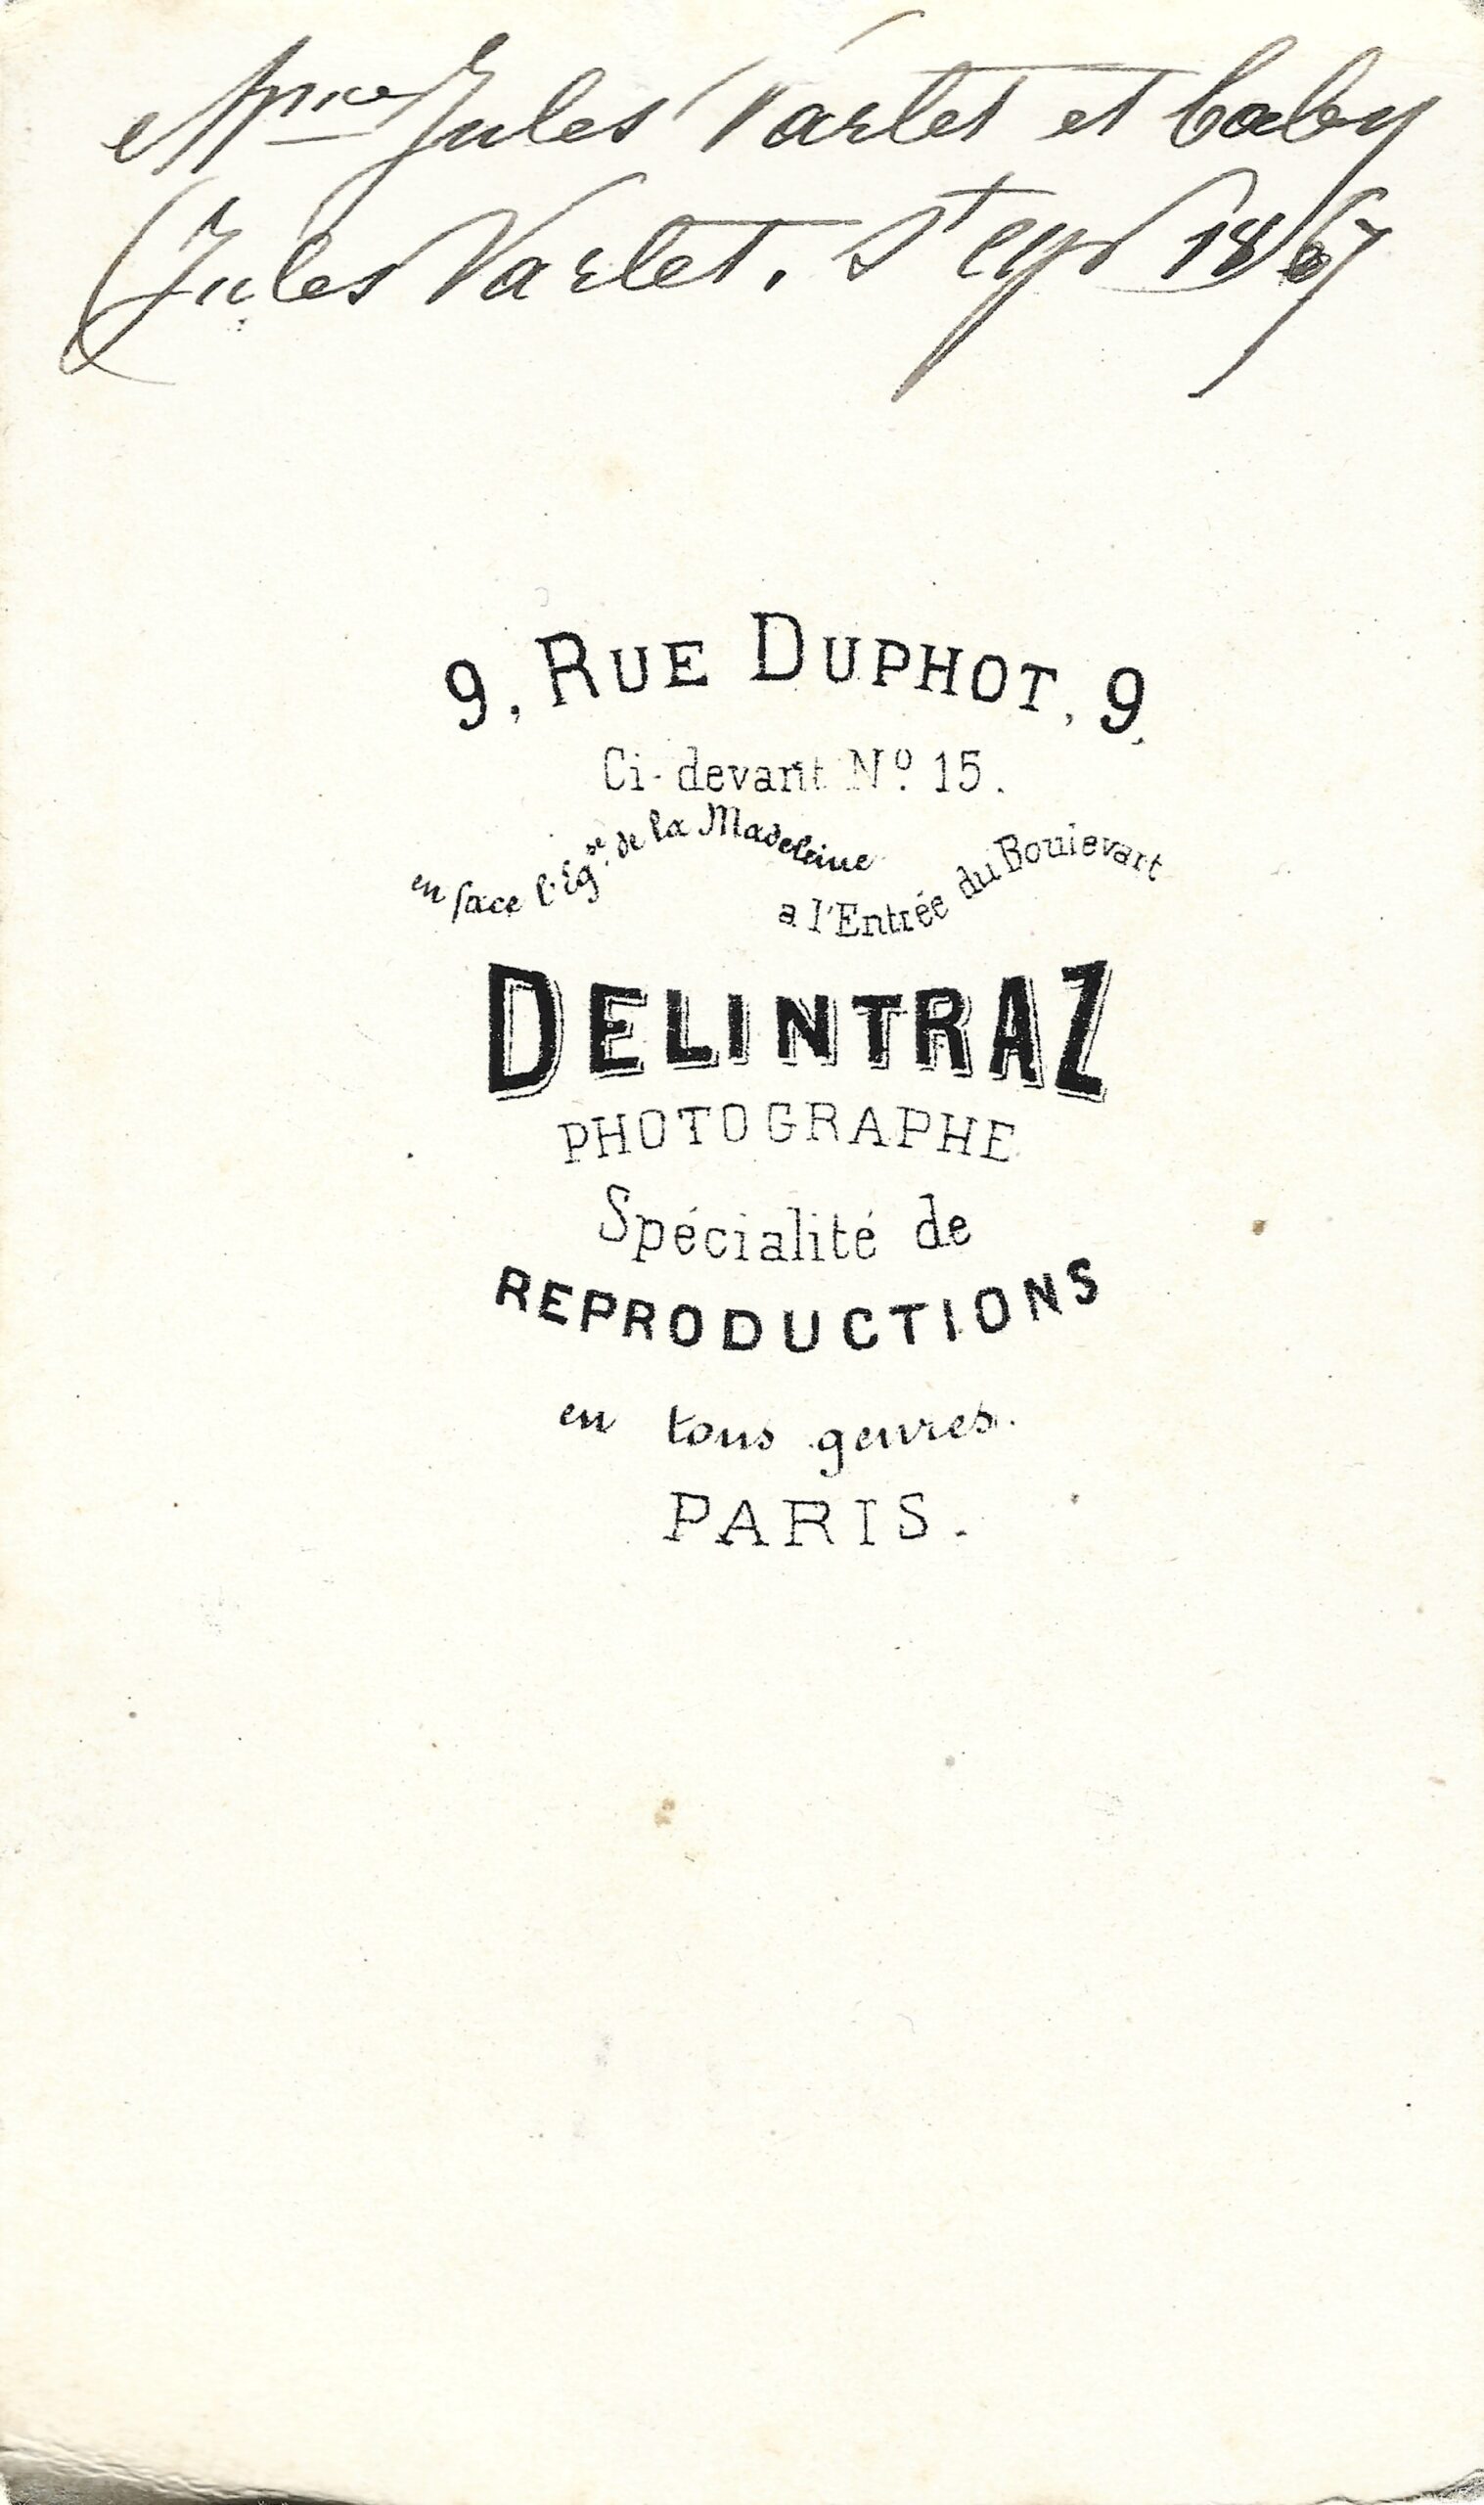 Mme Jules Varlet et baby
(Jules Varlet. St Cyr 1867
9, RUE DUPHOT, 9.
Ci-devant No. 15.
en face l'Egse. de la Madeleine
a l'Entrée du Boulevart
DELINTRAZ
PHOTOGRAPHE
Spécialité de
REPRODUCTIONS
en tous genres.
PARIS.